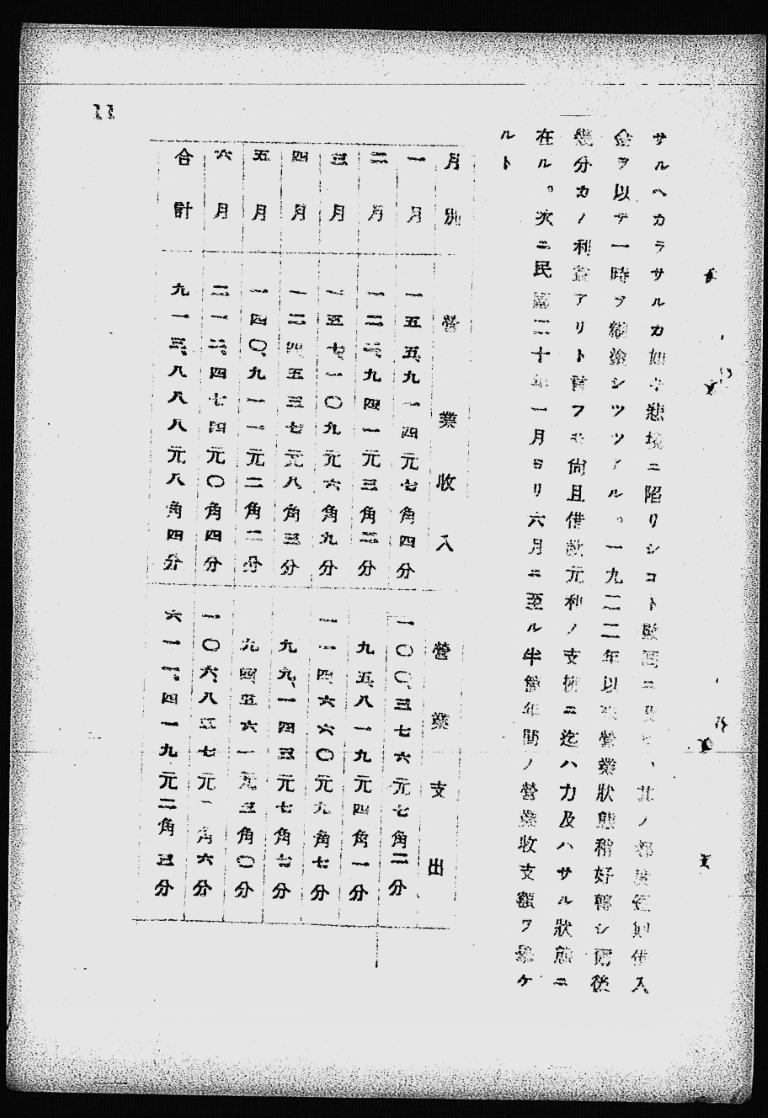 11
サルヘカラサルカ如キ悲境ニ陥リシコト數回ニ及ヒ、其ノ都度短期借入
金ヲ以テ一時ヲ糊塗シツツアル。一九二二年以來營業狀態稍好轉シ爾後
幾分カノ利益アリト言フモ尙且借款元利ノ支拂ニ迄ハ力及ハサル狀態ニ
在ル。次ニ民國二十年一月ヨリ六月ニ至ル半箇年間ノ營業收支額ヲ擧ケ
ルト
月別 營業收入 營業支出
一月 一五五、九一四元七角四分 一〇〇、三七六元七角二分
二月 一二二、九四一元三角二分 九五、八一九元四角一分
三月 一五七、一〇九元六角九分 一一四、六六〇元九角七分
四月 一二四、五三七元八角三分 九九、一四三元七角七分
五月 一四〇、九一一元二角二分 九四、五六一元三角〇分
六月 二一二、四七四元〇角四分 一〇六、八五七元 角六分
合計 九一三、八八八元八角四分 六一一、四一九元二角三分